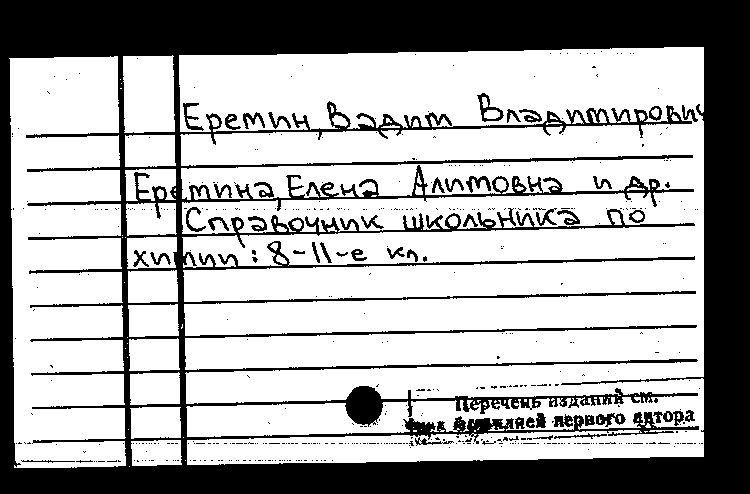 Еремин, Вадим Владимирович
Еремина, Елена Алимовна и др.
Справочник школьника по
химии : 8-11-е кл.
Перечень изданий см.
фамилией первого автора